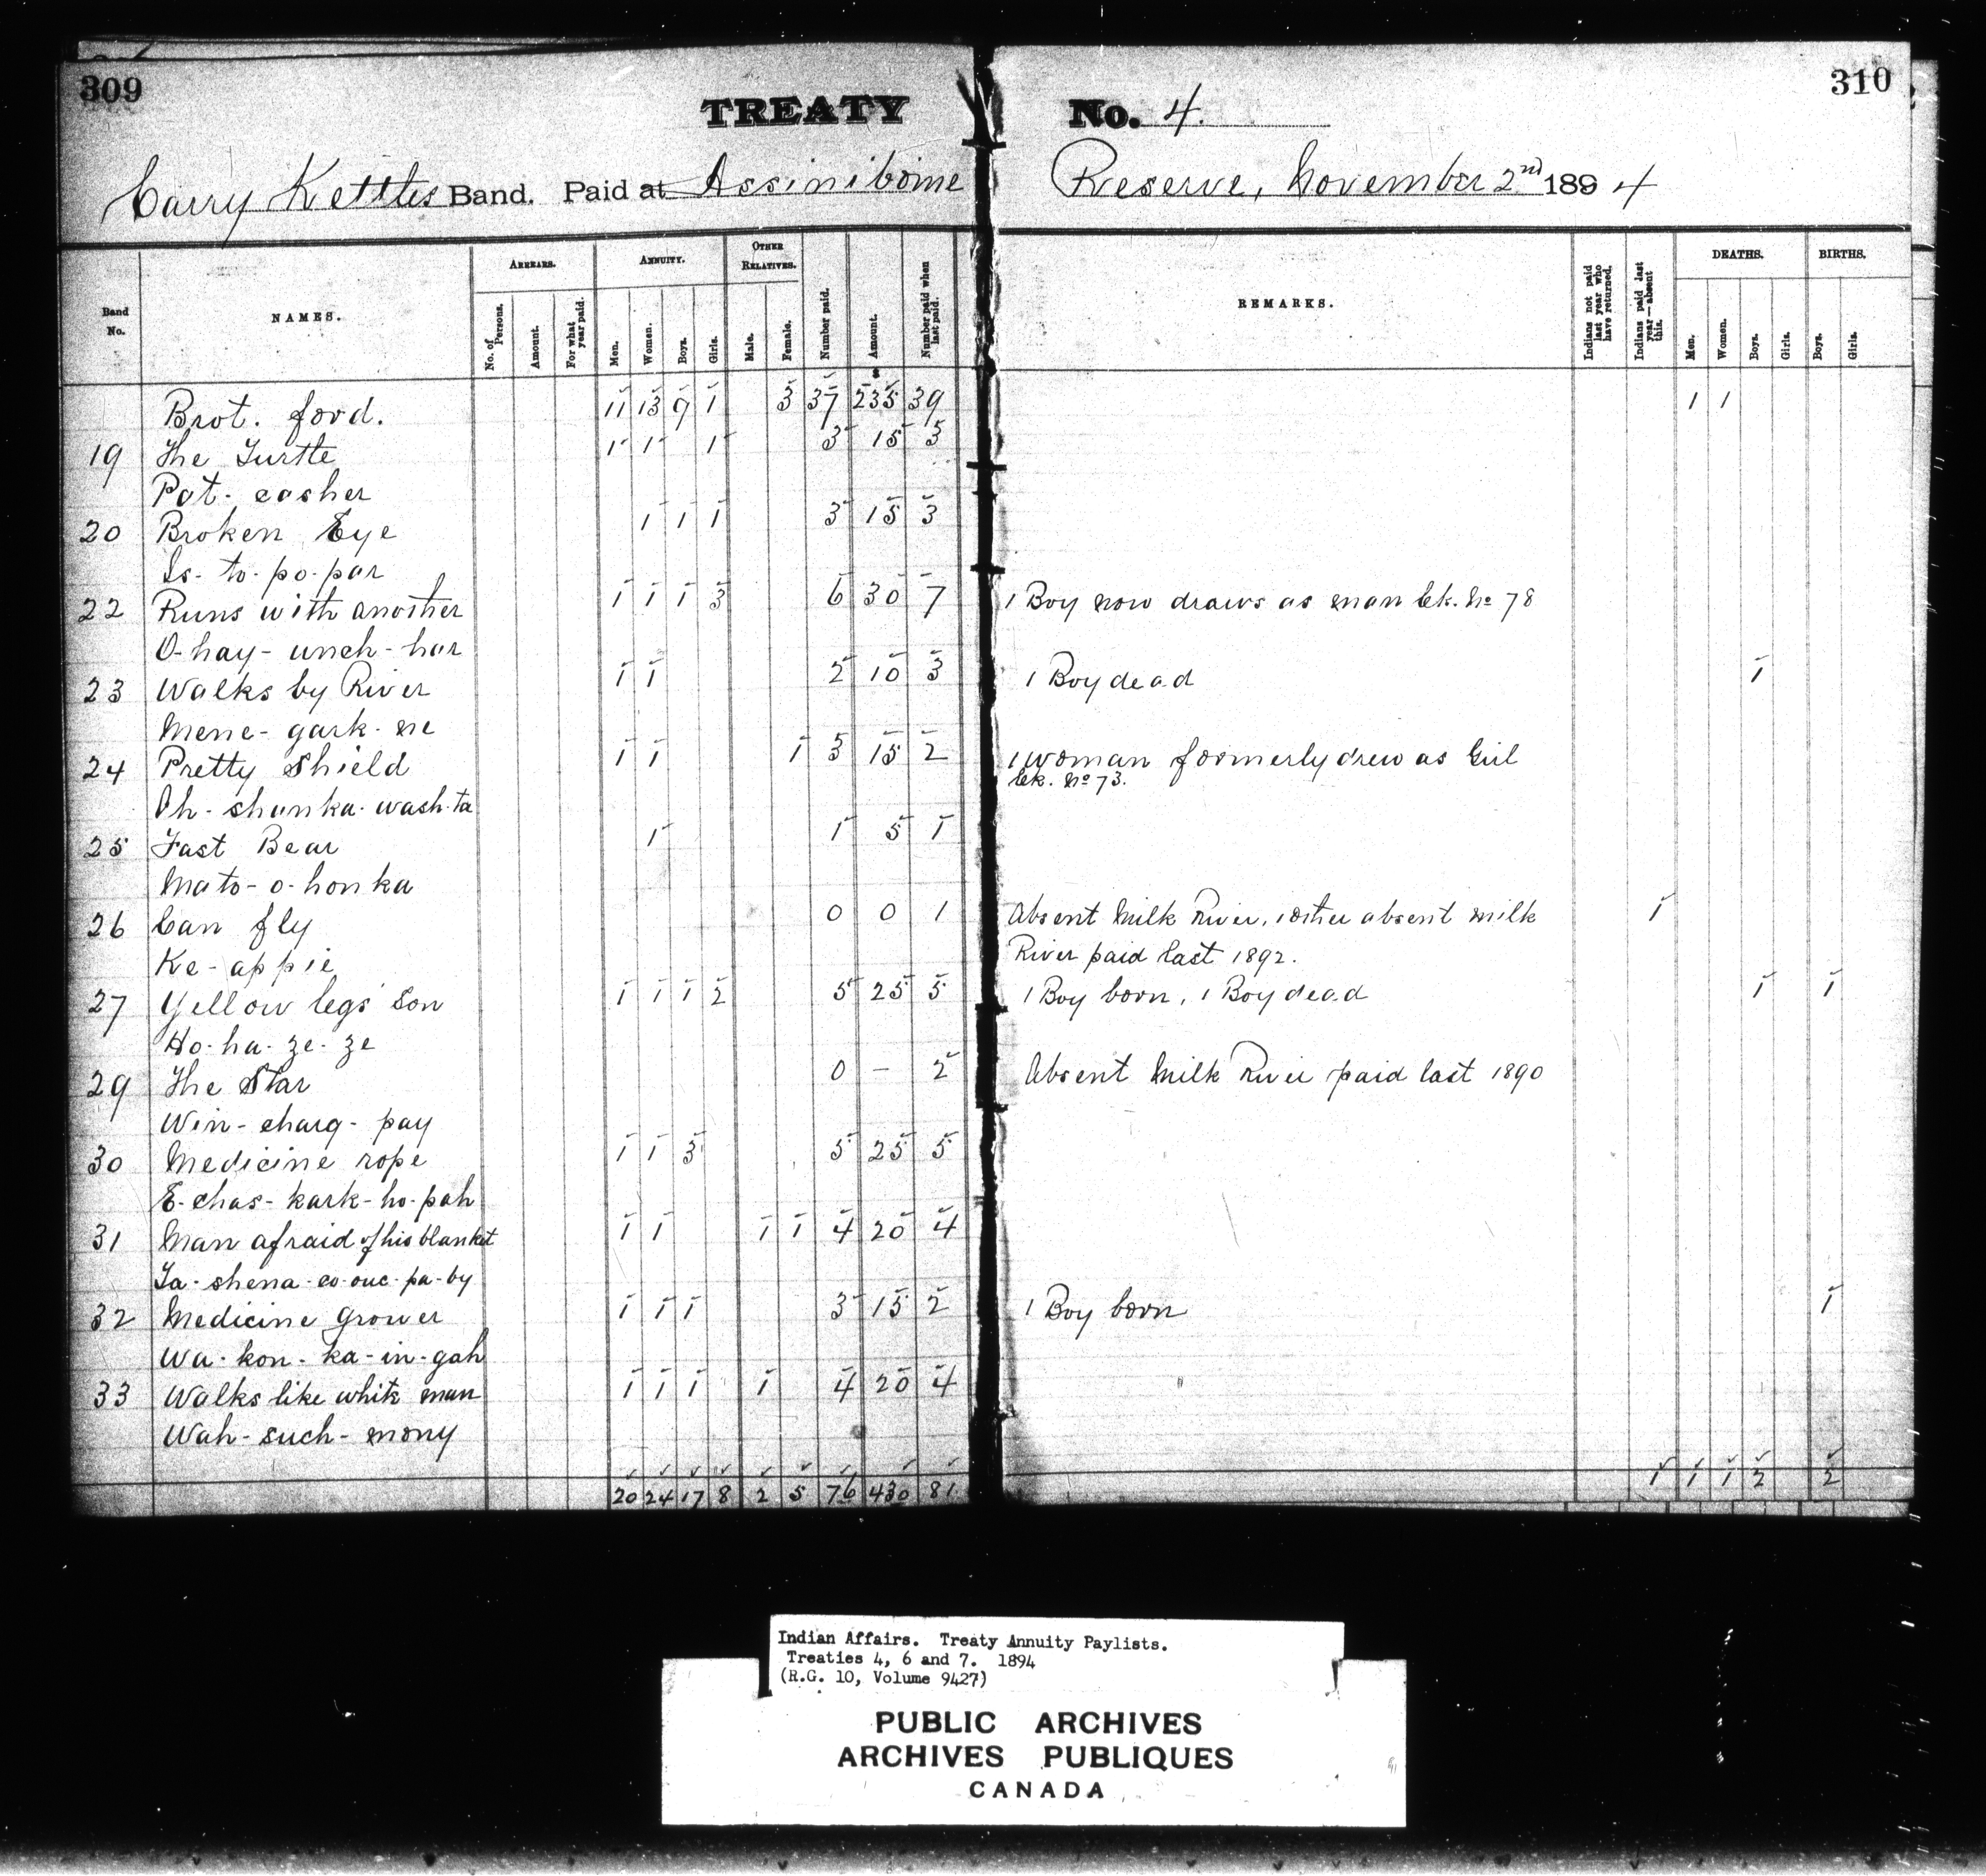 309
310
TREATY No. 4.
Carry Kettles Band. Paid at Assiniboine Reserve, November 2nd 1894
Band No.
NAMES.
ARREARS.
No. of Persons.
Amount.
For what year paid.
ANNUITY.
Men.
Women.
Boys.
Girls.
OTHER RELATIVES.
Male.
Female.
Number paid.
Amount.
Number paid when last paid.
REMARKS.
Indians not paid last year who have returned.
Indians paid last year—absent this.
DEATHS.
Men.
Women.
Boys.
Girls.
BIRTHS.
Boys.
Girls.
$
Brot. ford. 11 13 9 1 3 37 235 39 1 1
19 The Turtle 1 1 1 3 15 3
Pat-casher
20 Broken Eye 1 1 1 3 15 3
Is-to-po-par
22 Runs with another 1 1 1 3 6 30 7 1 Boy now draws as man tk. No 78
O-hay-unch-har
23 Walks by River 1 1 2 10 3 1 Boy dead 1
Mene-gark-ne
24 Pretty Shield 1 1 1 3 15 2 1 woman formerly drew as Girl
tk. No 73.
Oh-shunka-wash-ta
25 Fast Bear 1 1 5 1
Mato-o-honka
26 Can fly 0 0 1 Absent Milk River, 1 other absent milk 1
Ke-appie River paid last 1892.
27 Yellow legs' Son 1 1 1 2 5 25 5 1 Boy born, 1 Boy dead 1 1
Ho-ha-ze-ze
29 The Star 0 — 2 Absent Milk River paid last 1890
Win-charg-pay
30 Medicine rope 1 1 3 5 25 5
E-chas-kark-ho-pah
31 Man afraid of his blanket 1 1 1 1 4 20 4
Ta-shena-co-ouc-pa-by
32 Medicine Grower 1 1 1 3 15 2 1 Boy born 1
Wa-kon-ka-in-gah
33 Walks like white man 1 1 1 1 4 20 4
Wah-such-mony
20 24 17 8 2 5 76 430 81 1 1 1 2 2
Indian Affairs. Treaty Annuity Paylists.
Treaties 4, 6 and 7. 1894
(R.G. 10, Volume 9427)
PUBLIC ARCHIVES
ARCHIVES PUBLIQUES
CANADA